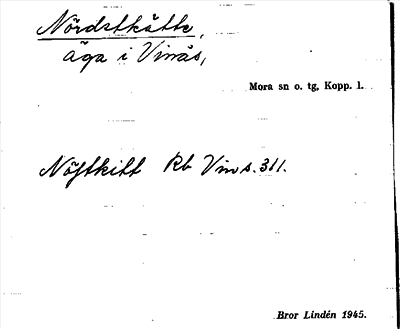 Nördstkätte,
äga i Vinäs,
Mora sn o. tg, Kopp. l.
Nöstkitt Rb Vin s. 311.
Bror Lindén 1945.